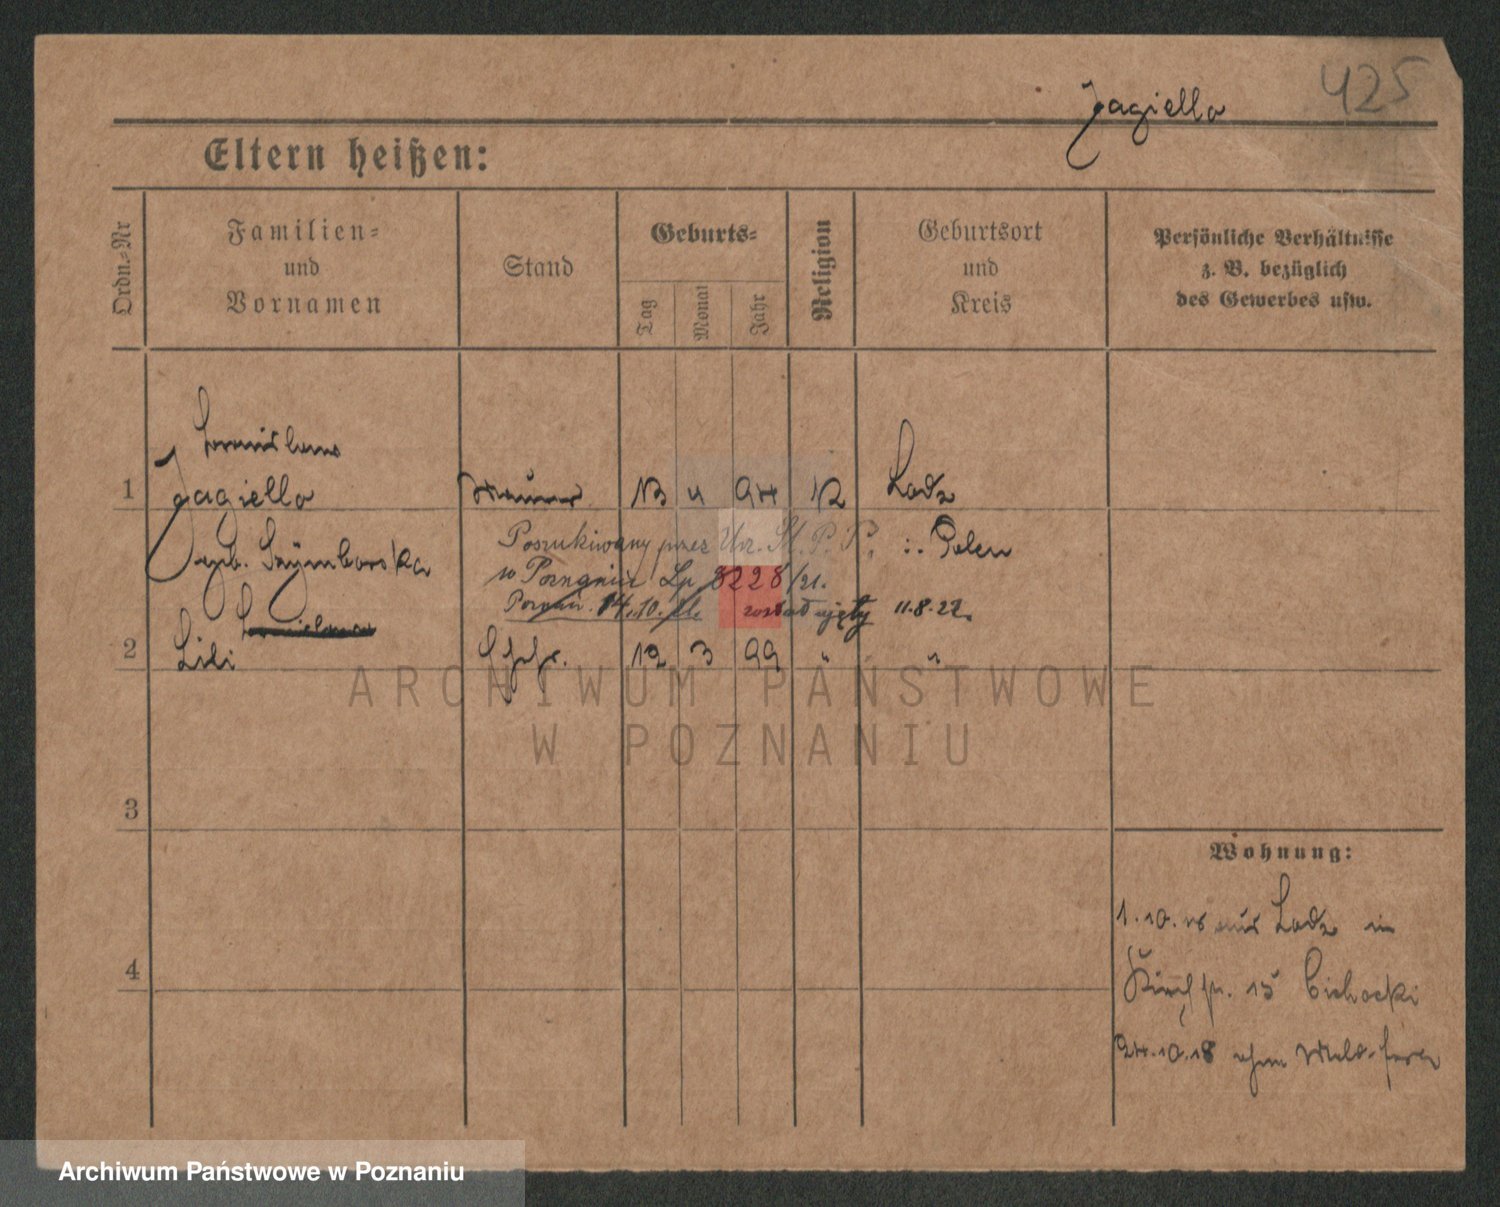 425
Jagiello
Eltern heißen:
Ordn.-Nr
Familien-
und
Vornamen
Stand
Geburts-
Tag
Monat
Jahr
Religion
Geburtsort
und
Kreis
Persönliche Verhältnisse
z. B. bezüglich
des Gewerbes usw.
1
Jagiello
Maurer
13 4 94
Lodz
geb. Szymborska
Poszukiwany przez Urz. Śl. P. P.
i. Polen
w Poznaniu Lp 8228/21.
Poznań. 14.10.21. został ujęty 11.8.22.
2
Lili
Ehefr.
12 3 99
"
"
3
4
Wohnung:
1.10.18 aus Lodz in
15 Cichocki
24.10.18 ohne
ARCHIWUM PAŃSTWOWE
W POZNANIU
Archiwum Państwowe w Poznaniu